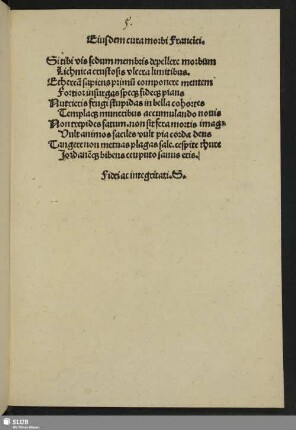 5.
Eiusdem cura morbi Francici.
Si tibi vis fedum membris depellere morbum
Lichnica crustosis vlcera limitibus.
Ethereā sapiens primū componere mentem
Fortior insurgas speq; fideq; pians
Nutrieris frugi stupidas in bella cohortes
Templaq; muneribus accumulando nouis
Non trepides fatum. non mortis imag-
Vult animos faciles vult pia corda deus
Tangere non metuas plagas sale. cespite thure
bibens ceu puto sanus eris.
Fidei ac integritati. S.
SLUB